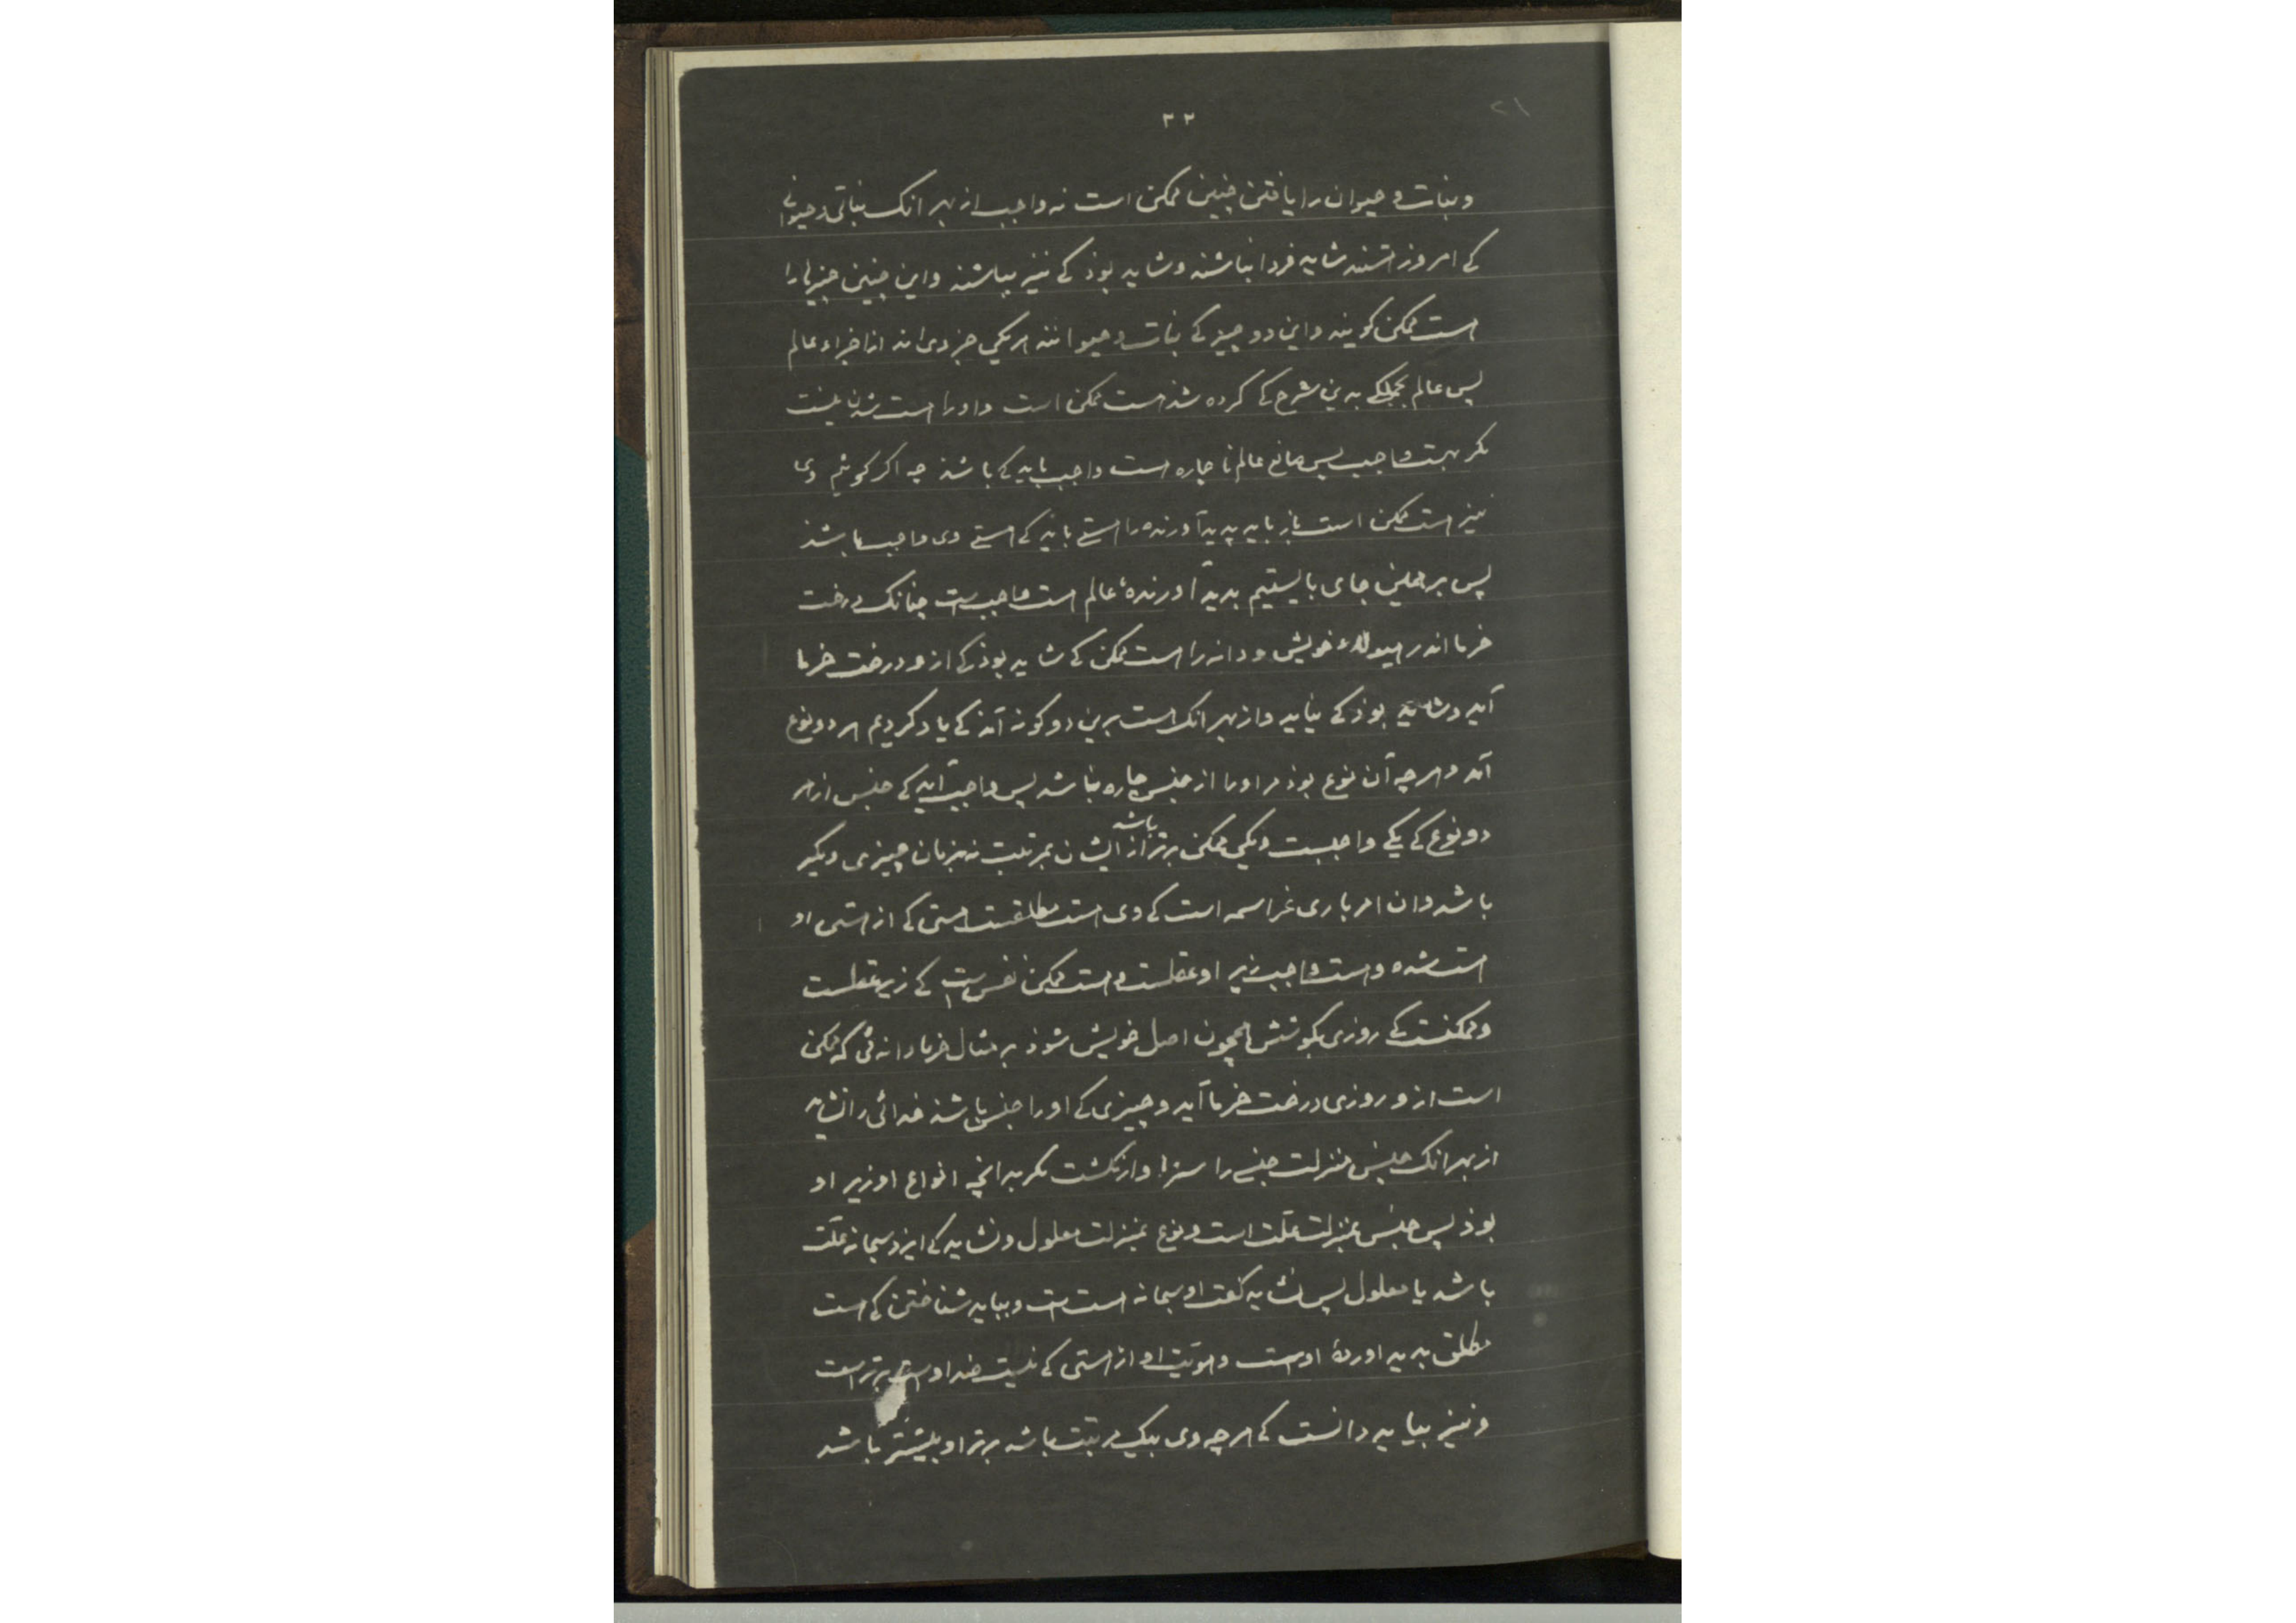 ۲۲
۲۱
و نبات و حیوان را یافتن چنین ممکن است نه واجب از بهر انک نباتی و حیوانی
کی امروز هستند شاید فردا نباشند و شاید بوذ کی نیز بباشند و این چنین چیزها را
هست ممکن کویند و این دو چیز کی نبات و حیوانند هر یکی جزوی اند از اجزاء عالم
پس عالم بجملکی بدین شرح کی کرده شذ هست ممکن است و او را هست شدن نیست
مکر بهست واجب پس صانع عالم ناچاره هست واجب باید کی باشذ چه اکر کوئیم وی
نیز هست ممکن است باز باید پدیدآورنده را هستی باید کی هستی وی واجب باشذ
پس بر همین جای بایستیم پدیدآورندهٔ عالم هست واجبست چنانک درخت
خرما اندر هیولاء خویش و دانه را هست ممکن کی شاید بوذ کی ازو درخت خرما
آید و شاید بوذ کی نیاید و از بهر انک هست برین دو کونه آمذ کی یاد کردیم هر دو نوع
آمد و هرچه آن نوع بوذ مر او را از جنس چاره نباشد پس واجب آید کی جنس ازهر
دو نوع کی یکی واجبست و یکی ممکن برتر از ایشان باشد بمرتبت نه بزمان چیزی دیکر
باشد وان امر باری عز اسمه است کی وی هست مطلقست هستی کی از هستی او
هست شده و هست واجب زیر او عقلست و هست ممکن نفس است کی زیر عقلست
و ممکنست کی روزی بکوشش همچون اصل خویش شوذ بر مثال خرما دانه‌ئی که ممکن
است ازو روزی درخت خرما آید و چیزی کی او را جنس باشذ خدائی را نشاید
از بهر انک جنس منزلت جنسی را سزاوار نکشت مکر بدانچه انواع او زیر او
بوذ پس جنس بمنزلت علت است و نوع بمنزلت معلول و نشاید کی ایزد سبحانه علت
باشد یا معلول پس نشاید کفت او سبحانه هست است و بباید شناختن کی هست
مطلق پدید اوردهٔ اوست و هویت او از هستی کی نیست ضد اوست برتر است
و نیز بباید دانست کی هرچه وی بیک مرتبت باشد برتر او بیشتر باشد